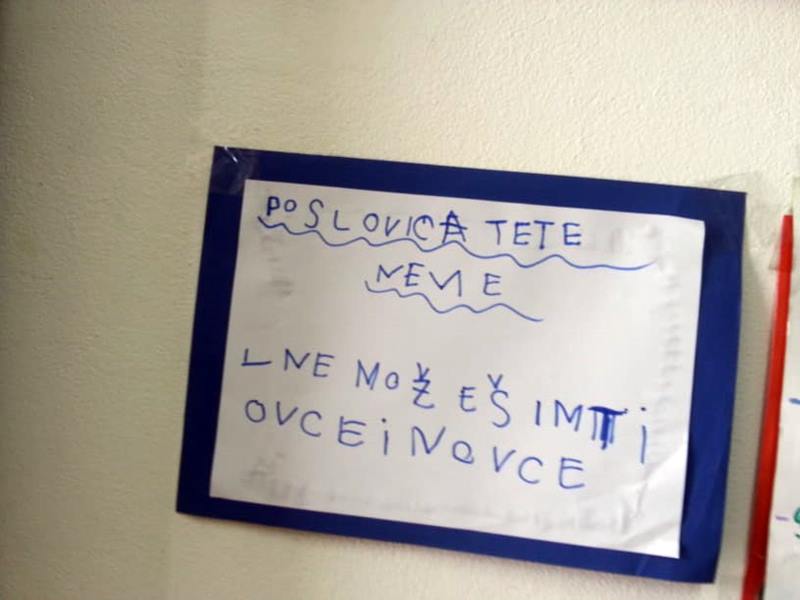 POSLOVICA TETE
NEVIE
– NE MOŽEŠ IMTI I
OVCE I NOVCE